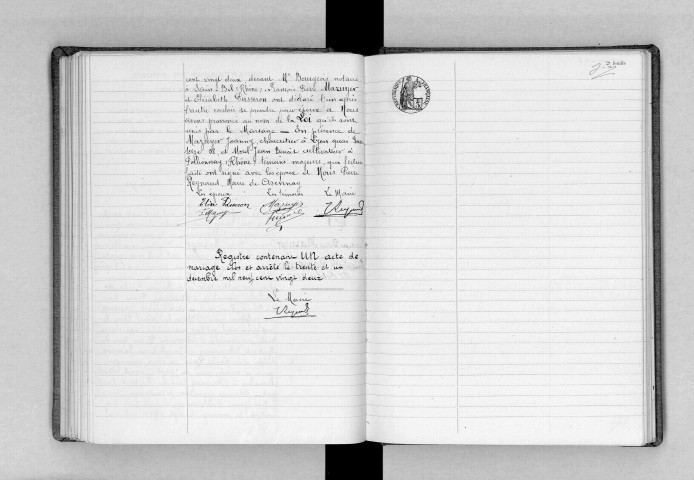 cent vingt deux devant Me Bourgeois notaire
à Sain-Bel (Rhône). François Pierre Mazuyer
et Elisabeth Pisseron ont déclaré l'un après
l'autre vouloir se prendre pour époux et Nous
avons prononcé au nom de la Loi qu'ils sont
unis par le Mariage — En présence de
Mazuyer Joanny, charcutier à Lyon quai
et Morel Jean Benoît cultivateur à
Pollionnay (Rhône) témoins majeurs, qui lecture
faite ont signé avec les époux et Nous Pierre
Reynaud, Maire de
Les époux Les témoins Le Maire
Mazuyer
Registre contenant UN acte de
mariage clos et arrêté le trente et un
décembre mil neuf cent vingt deux
Le Maire
feuille